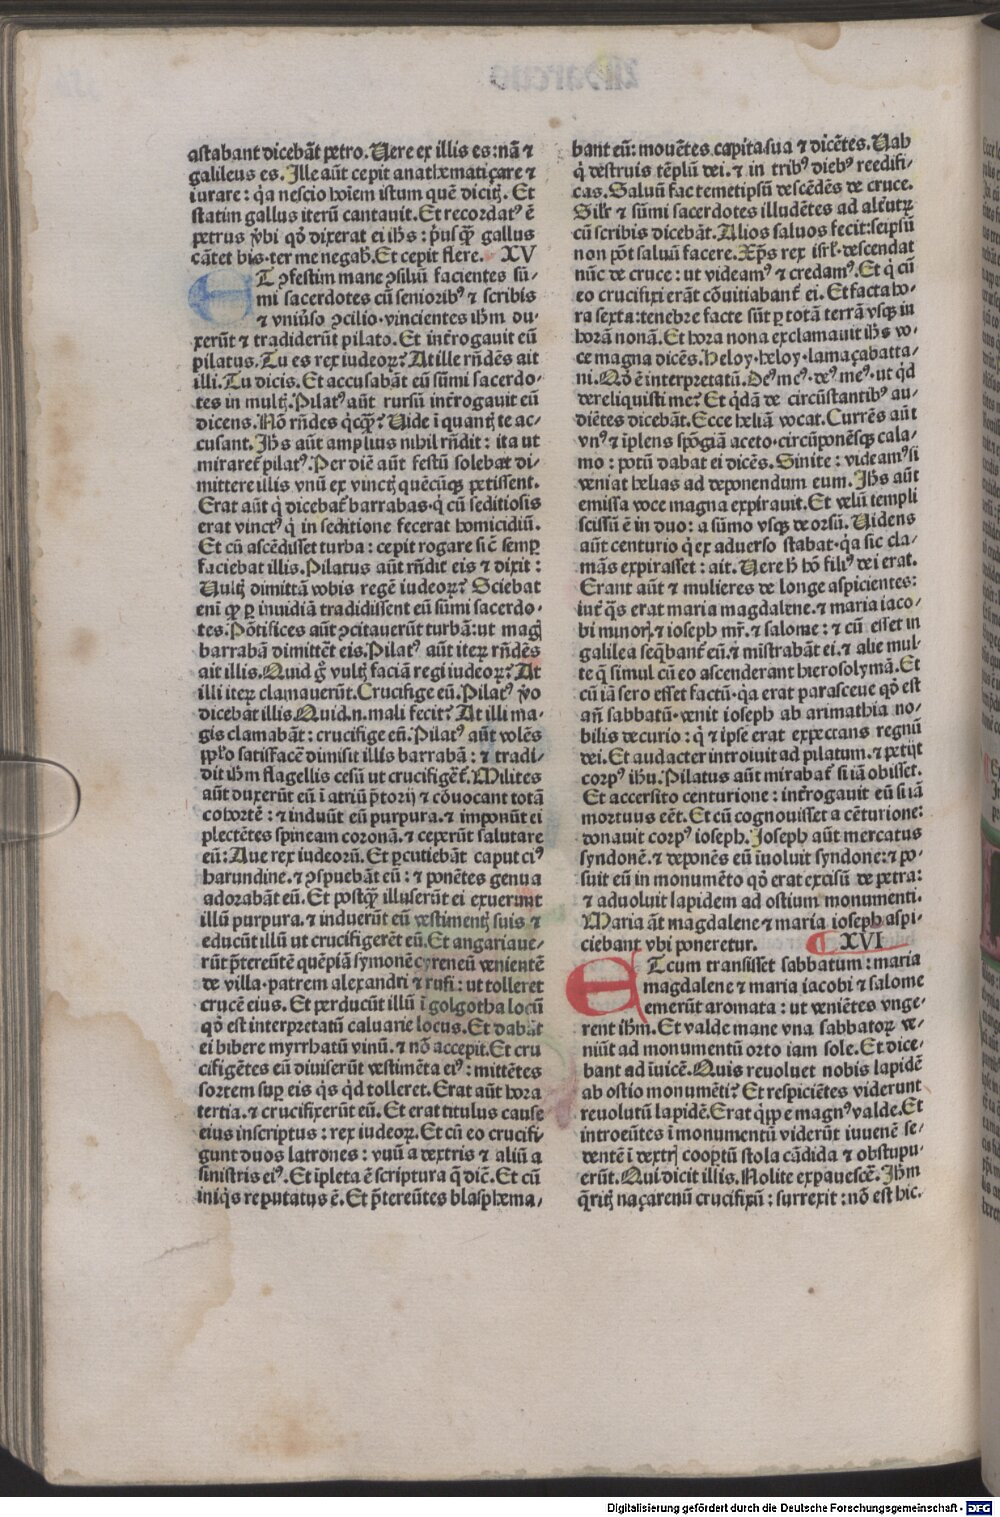 astabant dicebāt petro. Vere ex illis es: nā ⁊
galileus es. Ille aūt cepit anathematiçare ⁊
iurare: q̇a nescio hoiēm istum quē dicitꝭ. Et
statim gallus iterū cantauit. Et recordatꝰ ē
petrus v̇bi qđ dixerat ei ihs: p̄usq̄ꝫ gallus
cātet bis·ter me negabꝭ. Et cepit flere. XV
ET ꝯfestim mane ꝯsiliū facientes sū-
mi sacerdotes cū senioribꝰ ⁊ scribis
⁊ vniūso ꝯcilio·vincientes ihm du-
xerūt ⁊ tradiderūt pilato. Et int̄rogauit eū
pilatus. Tu es rex iudeoꝝ? At ille rn̄dēs ait
illi. Tu dicis. Et accusabāt eū sūmi sacerdo-
tes in multꝭ. Pilatꝰ aūt rursū int̄rogauit eū
dicens. Nō rn̄des q̇cq̄ꝫ? Vide ī quantꝭ te ac-
cusant. Ihs aūt amplius nihil rn̄dit: ita ut
miraret̄ pilatꝰ. Per diē aūt festū solebat di-
mittere illis vnū ex vinctꝭ quēcūqꝫ petissent.
Erat aūt q̇ dicebat̄ barrabas·q̇ cū seditiosis
erat vinctꝰ q̇ in seditione fecerat homicidiū.
Et cū ascēdisset turba: cepit rogare sic̄ semꝑ
faciebat illis. Pilatus aūt rn̄dit eis ⁊ dixit:
Vultꝭ dimittā vobis regē iudeoꝝ? Sciebat
enī ꝙ ꝑ inuidiā tradidissent eū sūmi sacerdo-
tes. Pōtifices aūt ꝯcitauerūt turbā: ut magꝭ
barrabā dimittēt eis. Pilatꝰ aūt iteꝝ rn̄dēs
ait illis. Quid ḡ vultꝭ faciā regi iudeoꝝ? At
illi iteꝝ clamauerūt. Crucifige eū. Pilatꝰ v̇o
dicebat illis. Quid.n. mali fecit? At illi ma-
gis clamabāt: crucifige eū. Pilatꝰ aūt volēs
pplo satisfacē dimisit illis barrabā: ⁊ tradi-
dit ihm flagellis cesū ut crucifiget̄. Milites
aūt duxerūt eū ī atriū p̄torij ⁊ cōuocant totā
cohortē: ⁊ induūt eū purpura. ⁊ imponūt ei
plectētes spineam coronā. ⁊ ceperūt salutare
eū: Aue rex iudeorū. Et ꝑcutiebāt caput eiꝰ
harundine. ⁊ ꝯspuebāt eū: ⁊ ponētes genua
adorabāt eū. Et postq̄ꝫ illuserūt ei exuerunt
illū purpura. ⁊ induerūt eū vestimentꝭ suis ⁊
educūt illū ut crucifigerēt eū. Et angariaue-
rūt p̄tereūtē quēpiā symonē cyreneū venientē
de villa·patrem alexandri ⁊ rufi: ut tolleret
crucē eius. Et perducūt illū ī golgotha locū
qđ est interpretatū caluarie locus. Et dabāt
ei bibere myrrhatū vinū. ⁊ nō accepit. Et cru
cifigētes eū diuiserūt vestimēta eiꝰ: mittētes
sortem suꝑ eis q̇s q̇d tolleret. Erat aūt hora
tertia. ⁊ crucifixerūt eū. Et erat titulus cause
eius inscriptus: rex iudeoꝝ. Et cū eo crucifi-
gunt duos latrones: vnū a dextris ⁊ aliū a
sinistris eiꝰ. Et īpleta ē scriptura q̄ dicē. Et cū
iniq̇s reputatus ē. Et p̄tereūtes blasphema-
bant eū: mouētes capita sua ⁊ dicētes. Vah
q̇ destruis tēplū dei. ⁊ in tribꝰ diebꝰ reedifi-
cas. Saluū fac temetipsū descēdēs de cruce.
Silr ⁊ sūmi sacerdotes illudētes ad alet̄utꝝ
cū scribis dicebāt. Alios saluos fecit: seipsū
non pōt saluū facere. Xp̄s rex isrl·descendat
nūc de cruce: ut videamꝰ ⁊ credamꝰ. Et q̇ cū
eo crucifixi erāt cōuitiabant̄ ei. Et facta ho-
ra sexta: tenebre facte sūt ꝑ totā terrā vsqꝫ in
horā nonā. Et hora nona exclamauit ihs vo-
ce magna dicēs. Heloy·heloy·lamaçabatta-
ni. Qđ ē interpretatū. Deꝰ meꝰ·deꝰ meꝰ·ut q̇d
dereliquisti me? Et q̇dā de circūstantibꝰ au-
diētes dicebāt. Ecce heliā vocat. Currēs aūt
vnꝰ ⁊ iplens spōgiā aceto·circūponēsqꝫ cala-
mo: potū dabat ei dicēs. Sinite: videamꝰ si
veniat helias ad deponendum eum. Ihs aūt
emissa voce magna expirauit. Et velū templi
scissū ē in duo: a sūmo vsqꝫ deorsū. Videns
aūt centurio q̇ ex aduerso stabat·q̇a sic cla-
mās expirasset: ait. Vere h̄ hō filiꝰ dei erat.
Erant aūt ⁊ mulieres de longe aspicientes:
int̄ q̄s erat maria magdalene. ⁊ maria iaco-
bi minorꝭ ⁊ ioseph mr̄. ⁊ salome: ⁊ cū esset in
galilea seq̄bant̄ eū. ⁊ mīstrabāt ei. ⁊ alie mul-
te q̄ simul cū eo ascenderant hierosolymā. Et
cū iā sero esset factū·q̇a erat parasceue qđ est
an̄ sabbatū·venit ioseph ab arimathia no-
bilis decurio: q̇ ⁊ ipse erat expectans regnū
dei. Et audacter introiuit ad pilatum. ⁊ petijt
corpꝰ ihu. Pilatus aūt mirabat̄ si iā obisset.
Et accersito centurione: int̄rogauit eū si iā
mortuus eēt. Et cū cognouisset a cēturione:
donauit corpꝰ ioseph. Ioseph aūt mercatus
syndonē. ⁊ deponēs eū īuoluit syndone: ⁊ po-
suit eū in monumēto qđ erat excisū de petra:
⁊ aduoluit lapidem ad ostium monumenti.
Maria āt magdalene ⁊ maria ioseph aspi-
ciebant vbi poneretur. XVI
ET cum transisset sabbatum: maria
magdalene ⁊ maria iacobi ⁊ salome
emerūt aromata: ut veniētes vnge-
rent ihm. Et valde mane vna sabbatoꝝ ve-
niūt ad monumentū orto iam sole. Et dice-
bant ad īuicē. Quis reuoluet nobis lapidē
ab ostio monumēti? Et respiciētes viderunt
reuolutū lapidē. Erat q̇ppe magnꝰ valde. Et
introeūtes ī monumentū viderūt iuuenē se-
dentē ī dextrꝭ coopertū stola cādida ⁊ obstupu-
erūt. Qui dicit illis. Nolite expauescē. Ihm
q̄ritꝭ naçarenū crucifixū: surrexit: nō est hic.
Digitalisierung gefördert durch die Deutsche Forschungsgemeinschaft - DFG